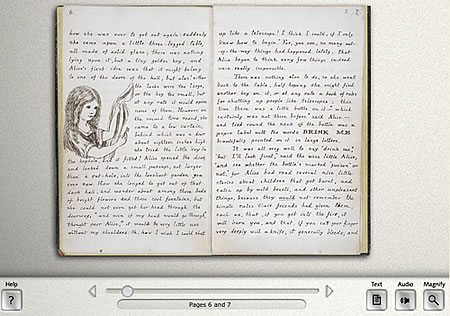 6.
how she was ever to get out again: suddenly
she came upon a little three-legged table,
all made of solid glass; there was nothing
lying upon it, but a tiny golden key, and
Alice's first idea was that it might belong
to one of the doors of the hall, but alas! either
the locks were too large,
or the key too small, but
at any rate it would open
none of them. However, on
the second time round, she
came to a low curtain,
behind which was a door
about eighteen inches high:
she tried the little key in
the keyhole, and it fitted! Alice opened the door,
and looked down a small passage, not larger
than a rat-hole, into the loveliest garden you
ever saw. How she longed to get out of that
dark hall, and wander about among those beds
of bright flowers and those cool fountains, but
she could not even get her head through the
doorway, "and even if my head would go through,"
thought poor Alice, "it would be very little use
without my shoulders. Oh, how I wish I could shut
up like a telescope! I think I could, if I only
knew how to begin." For, you see, so many out-
of-the-way things had happened lately, that
Alice began to think very few things indeed
were really impossible.
There was nothing else to do, so she went
back to the table, half hoping she might find
another key on it, or at any rate a book of rules
for shutting up people like telescopes: this
time there was a little bottle on it—"which
certainly was not there before" said Alice—
and tied round the neck of the bottle was a
paper label with the words DRINK ME
beautifully printed on it in large letters.
It was all very well to say "drink me,"
"but I'll look first," said the wise little Alice,
"and see whether the bottle's marked "poison" or
not," for Alice had read several nice little
stories about children that got burnt, and
eaten up by wild beasts, and other unpleasant
things, because they would not remember the
simple rules their friends had given them,
such as, that, if you get into the fire, it
will burn you, and that, if you cut your finger
very deeply with a knife, it generally bleeds, and
Help
?
Pages 6 and 7
Text Audio Magnify